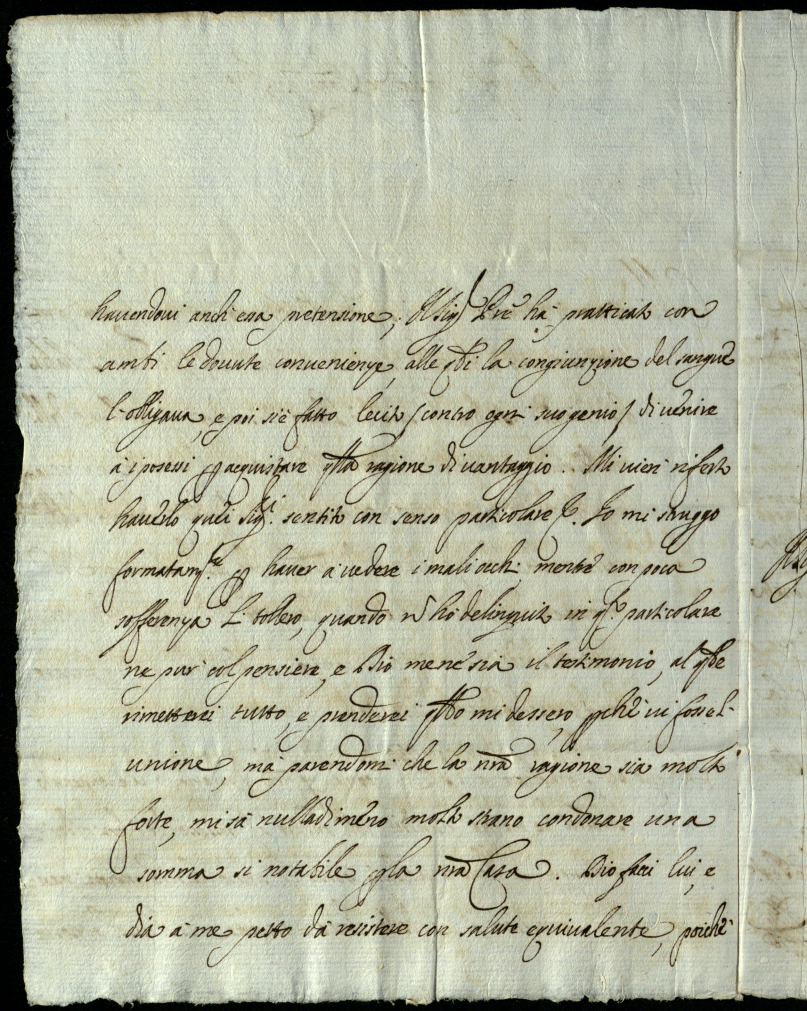 havendovi anch'essa pretensione; Il Sig.r Pre ha' pratticato con
ambi le dovute convenienze, alle qli la congiunzione del sangue
l'obligava, e poi s'è fatto lecito (contro ogni suo genio) di venire
à i possessi p acquistare qlla ragione di vantaggio. Mi vien riferto
haverlo quei Sig.i sentito con senso particolare &. Io mi struggo
formatam.te p haver à vedere i mali occhi, mentre con poca
sofferenza li tollero, quando nō hò delinquito in q.to particolare
ne pur col pensiere, e Dio mene sia il testimonio, al qle
rimetterei tutto, e prenderei qllo mi dessero, pchè vi fosse l'
unione, mà parendomi che la nrã ragione sia molto
forte, mi sà nulladimeno molto strano condonare una
somma si notabile p la nrã Casa. Dio facci lui, e
dia à me petto dà resistere con salute equivalente, poichè